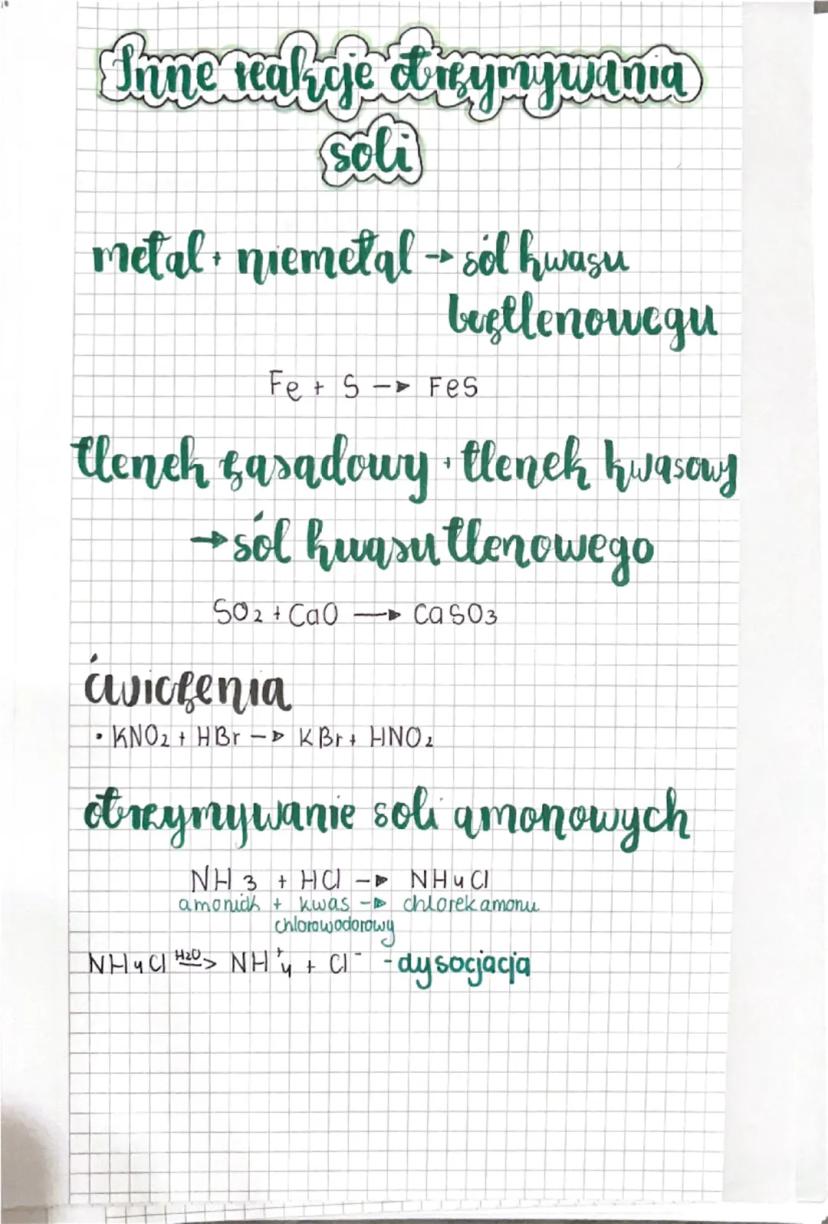 Inne reakcje otrzymywania
soli
metal + niemetal → sól kwasu
beztlenowegu
Fe + S → FeS
tlenek zasadowy + tlenek kwasowy
→ sól kwasu tlenowego
SO2 + CaO → CaSO3
ćwiczenia
• KNO2 + HBr → KBr + HNO2
otrzymywanie soli amonowych
NH3 + HCl → NH4Cl
amoniak + kwas → chlorek amonu
chlorowodorowy
NH4Cl H2O> NH+4 + Cl- - dysocjacja